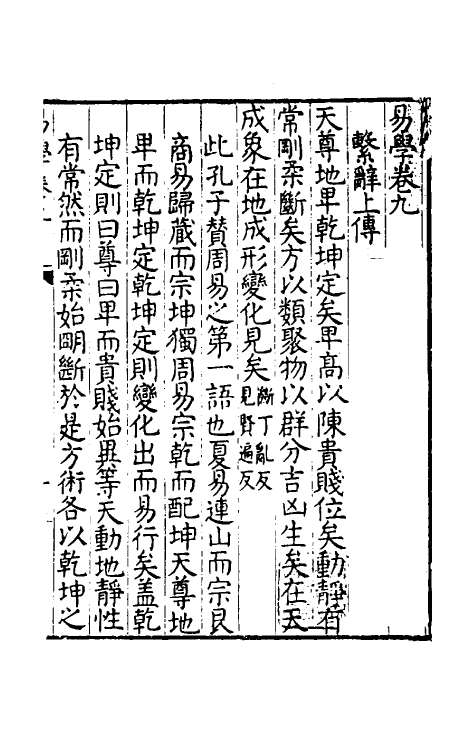 易學卷九
繫辭上傳
天尊地卑乾坤定矣卑高以陳貴賤位矣動靜有
常剛柔斷矣方以類聚物以群分吉凶生矣在天
成象在地成形變化見矣斷丁亂反見賢遍反
此孔子賛周易之第一語也夏易連山而宗艮
商易歸藏而宗坤獨周易宗乾而配坤天尊地
卑而乾坤定乾坤定則變化出而易行矣盖乾
坤定則曰尊曰卑而貴賤始異等天動地靜性
有常然而剛柔始明斷於是方術各以乾坤之